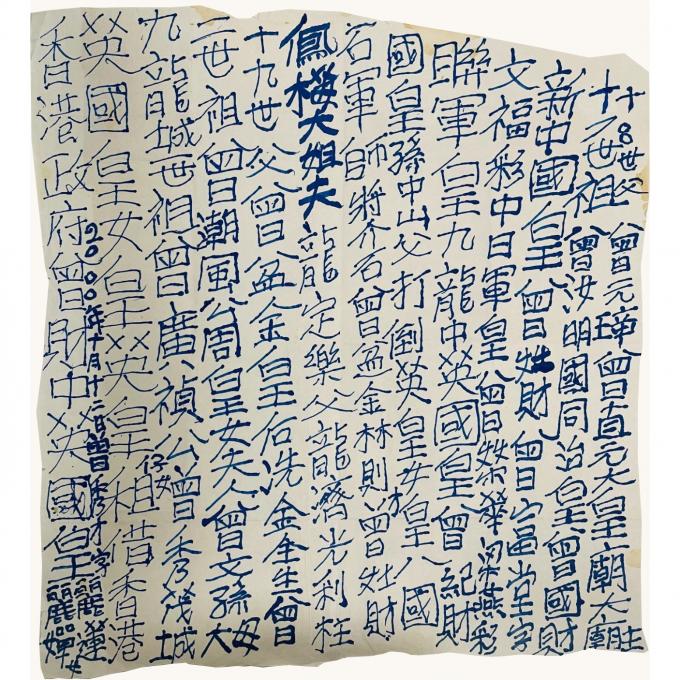 十八世父曾元琿曾直元大皇廟大廟
十二世祖曾汝明國同治皇曾國財
新中國皇曾姓財曾富堂字
文福彩中日軍皇曾榮華梁燕彩
聯軍皇九龍中英國皇曾紀財
國皇孫中山父打倒英皇女皇八國
石軍師蔣介石曾盆金林則曾姓財
鳳梅大姐夫龍定樂父龍濟光利柱
十九世父曾盆金皇后冼金生曾
二世祖曾潮風公周皇女夫人曾文孫母大
九龍城一世祖曾廣禎公曾秀茂城土
英國皇女皇英皇祖借香港
2000年十月十二日曾秀才字麗蓮
香港政府曾財中英國皇麗嬋女